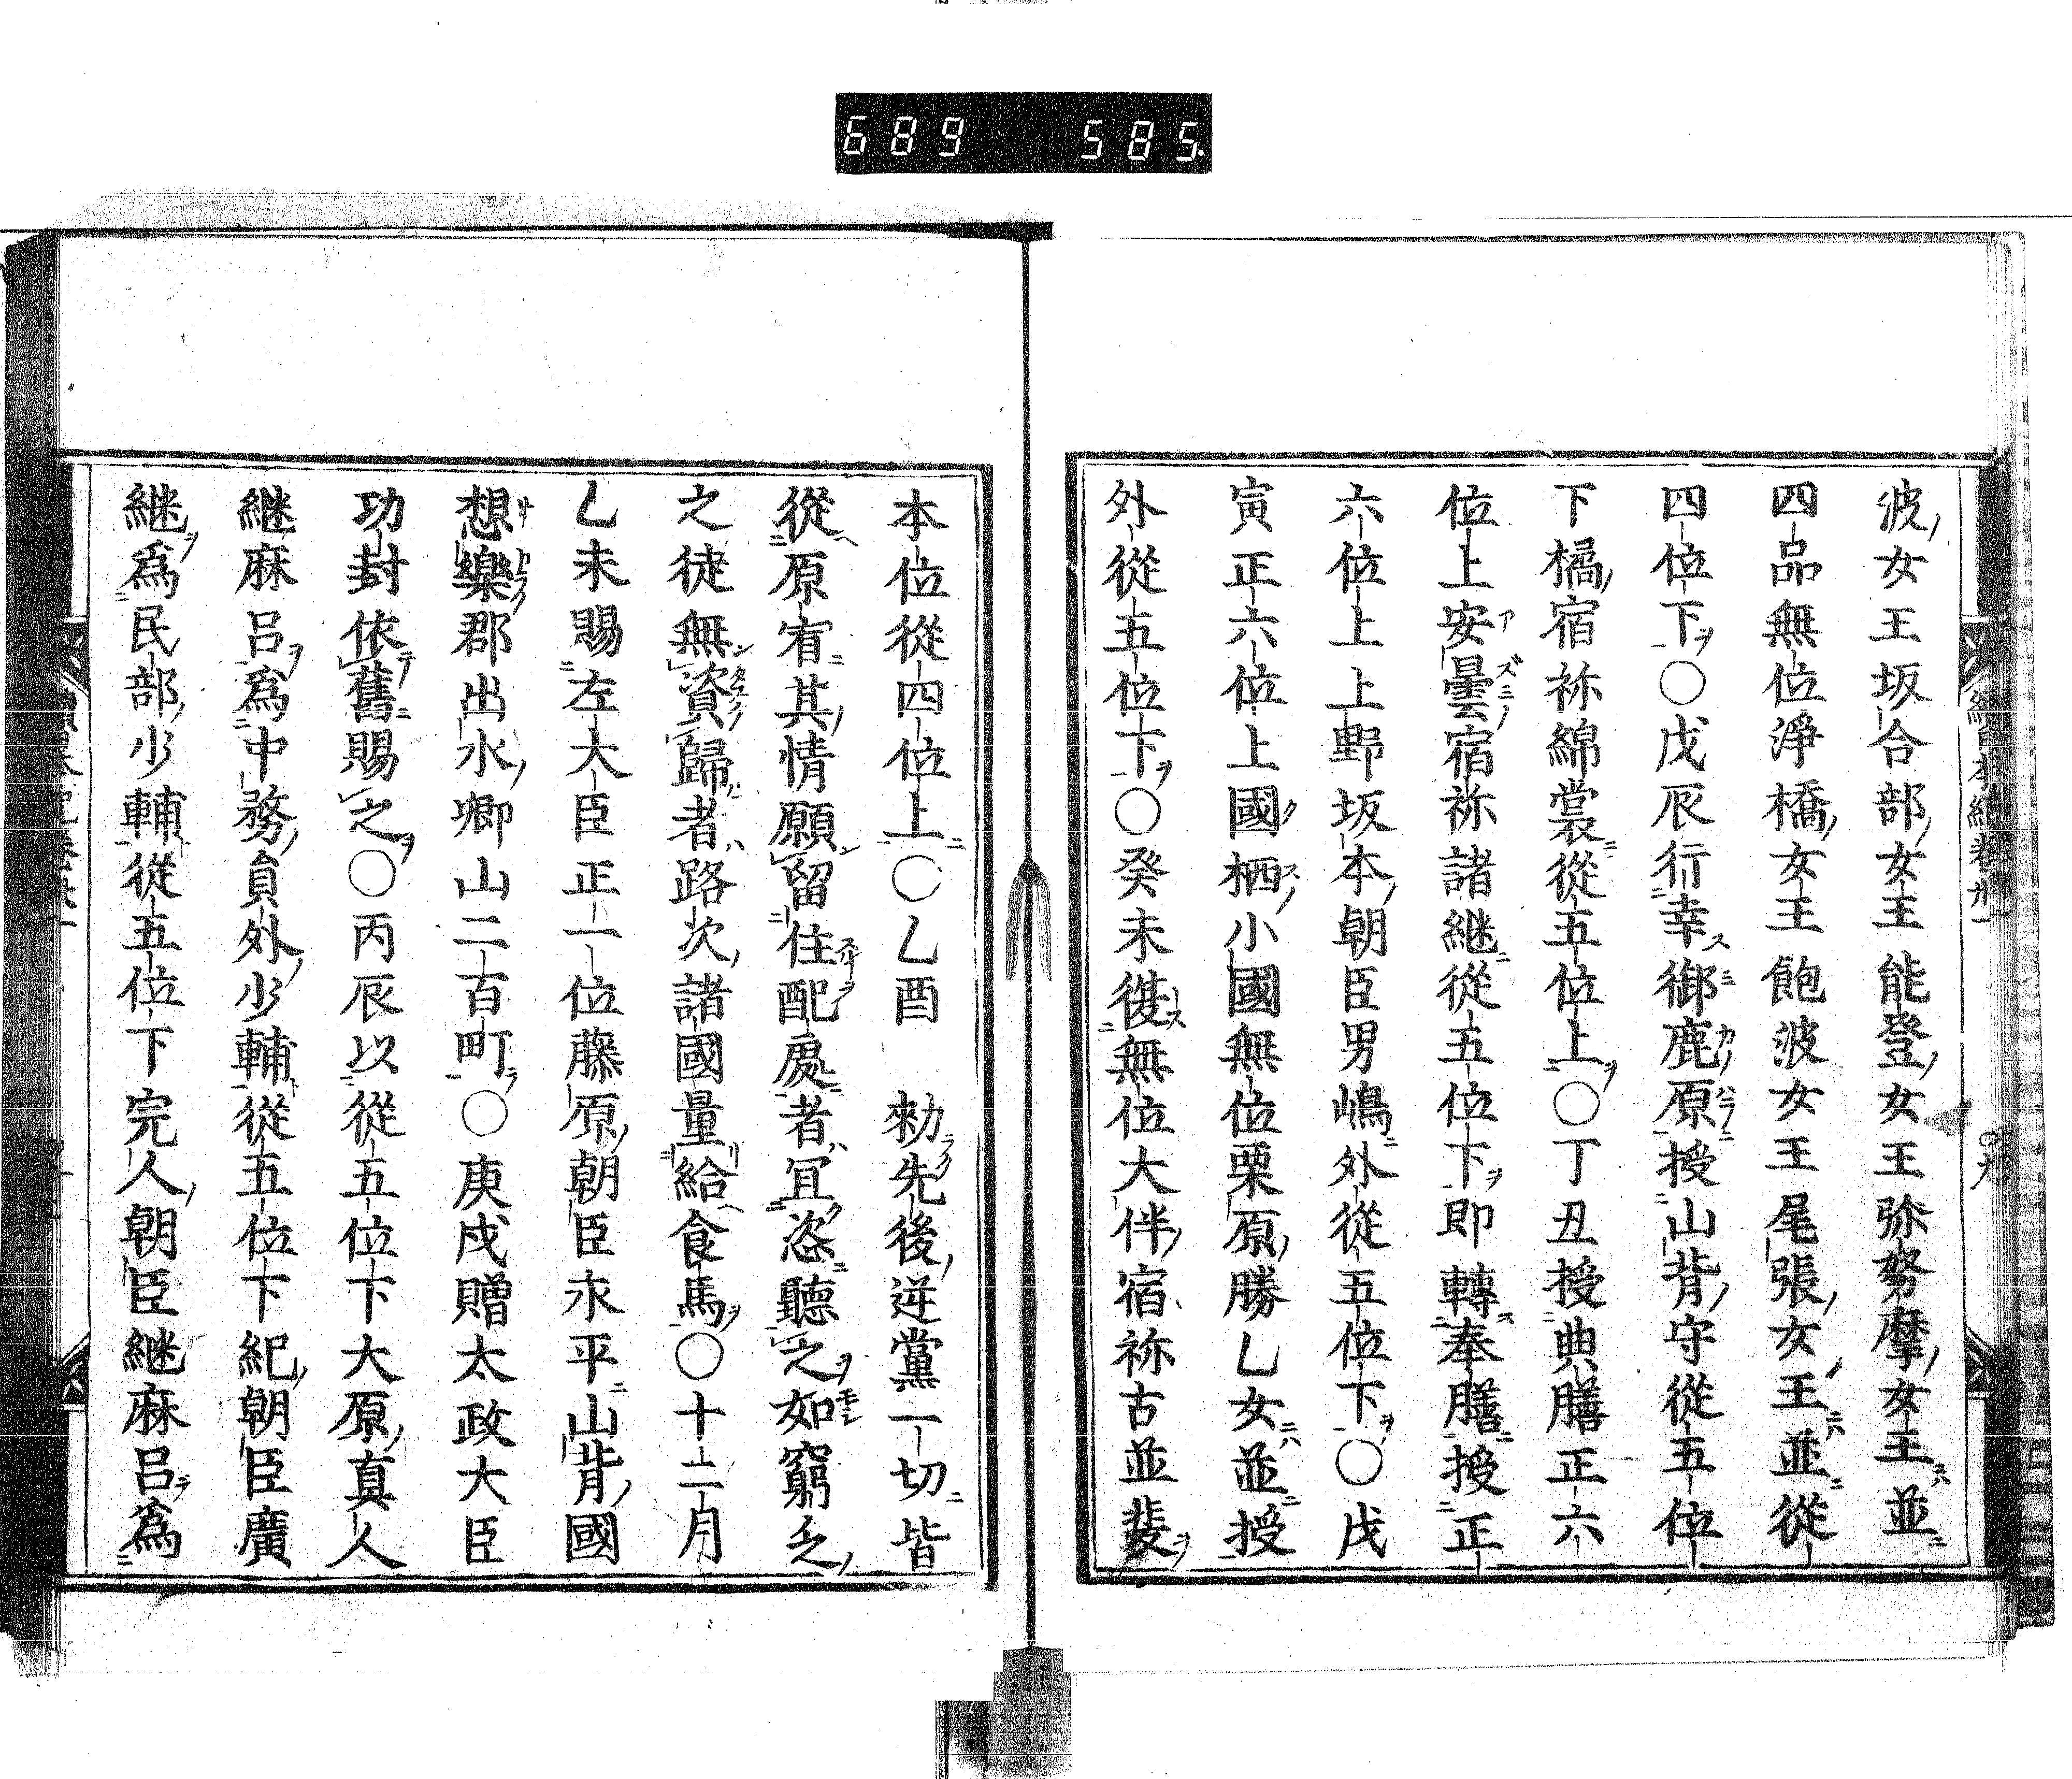 689 585.
波女王坂合部女王能登女王弥努摩女王並
四品無位淨橋女王飽波女王尾張女王並從
四位下〇戊辰行幸御鹿原授山背守從五位
下橘宿祢綿裳從五位上〇丁丑授典膳正六
位上安曇宿祢諸継從五位下即轉奉膳授正
六位上上野坂本朝臣男嶋外從五位下〇戊
寅正六位上國栖小國無位栗原勝乙女並授
外從五位下〇癸未復無位大伴宿祢古並婓
本位從四位上〇乙酉 勑先後逆黨一切皆
從原宥其情願留住配處者冝恣聽之如窮乏
之徒無資歸者路次諸國量給食馬〇十二月
乙未賜左大臣正一位藤原朝臣永平山背國
想樂郡出水卿山二百町〇庚戌贈太政大臣
功封依舊賜之〇丙辰以從五位下大原真人
継麻呂爲中務員外少輔從五位下紀朝臣廣
継爲民部少輔從五位下完人朝臣継麻呂爲